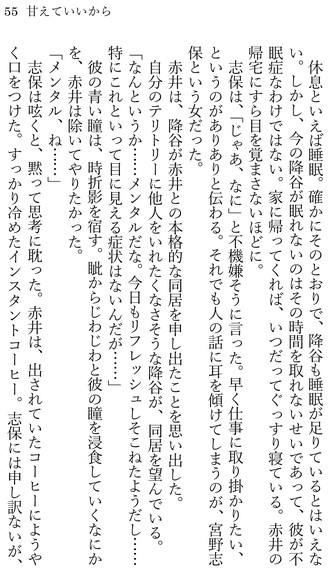 55 甘えていいから
休息といえば睡眠。確かにそのとおりで、降谷も睡眠が足りているとはいえな
い。しかし、今の降谷が眠れないのはその時間を取れないせいであって、彼が不
眠症なわけではない。家に帰ってくれば、いつだってぐっすり寝ている。赤井の
帰宅にすら目を覚まさないほどに。
志保は、「じゃあ、なに」と不機嫌そうに言った。早く仕事に取り掛かりたい、
というのがありありと伝わる。それでも人の話に耳を傾けてしまうのが、宮野志
保という女だった。
赤井は、降谷が赤井との本格的な同居を申し出たことを思い出した。
自分のテリトリーに他人をいれたくなさそうな降谷が、同居を望んでいる。
「なんというか……メンタルだな。今日もリフレッシュしそこねたようだし……
特にこれといって目に見える症状はないんだが……」
彼の青い瞳は、時折影を宿す。眦からじわじわと彼の瞳を浸食していくなにか
を、赤井は除いてやりたかった。
「メンタル、ね……」
志保は呟くと、黙って思考に耽った。赤井は、出されていたコーヒーにようや
く口をつけた。すっかり冷めたインスタントコーヒー。志保には申し訳ないが、